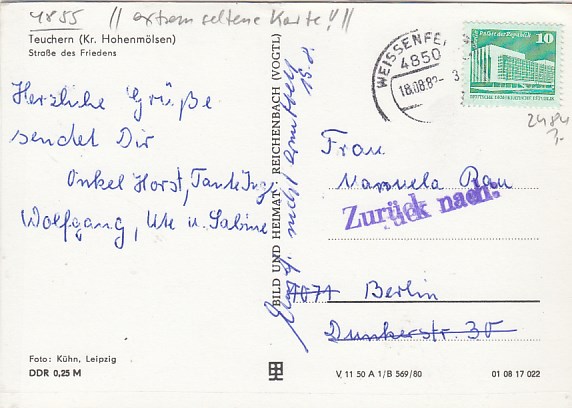 4855 || extrem seltene Karte!! ||
Teuchern (Kr. Hohenmölsen)
Straße des Friedens
Herzliche Grüße
sendet Dir
Onkel Horst, Tante Inge
Wolfgang, Ute u. Sabine
Foto: Kühn, Leipzig
DDR 0,25 M
BILD UND HEIMAT · REICHENBACH (VOGTL)
nicht ermittelt
WEISSENFE
4850
18.08.82- 3
Palast der Republik 10
DEUTSCHE DEMOKRATISCHE REPUBLIK
2484
Frau
Manuela Rau
Zurück nach:
1071 Berlin
Dunkerstr. 30
V 11 50 A 1/B 569/80
01 08 17 022